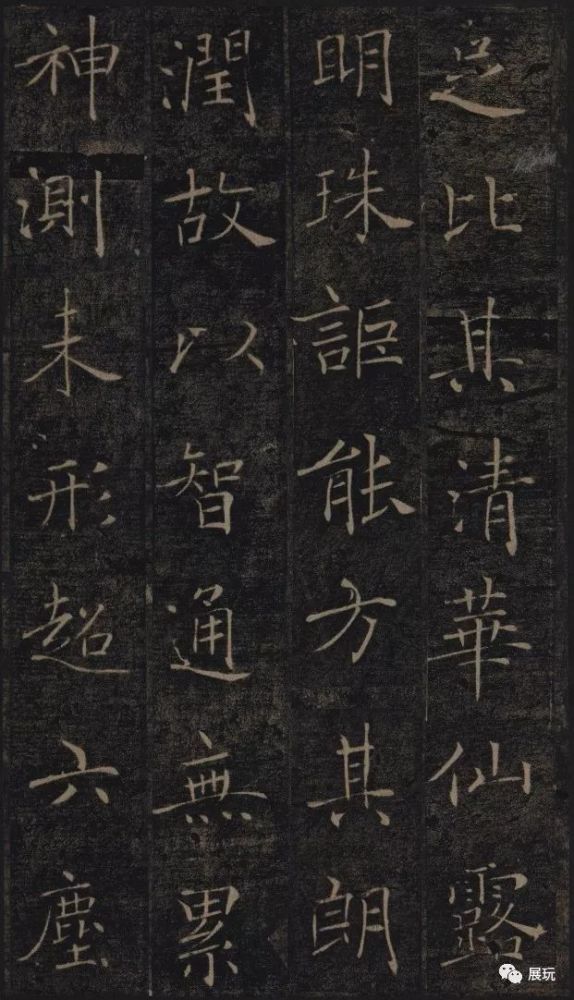 足比其清華仙露
明珠詎能方其朗
潤故以智通無累
神測未形超六塵
展玩